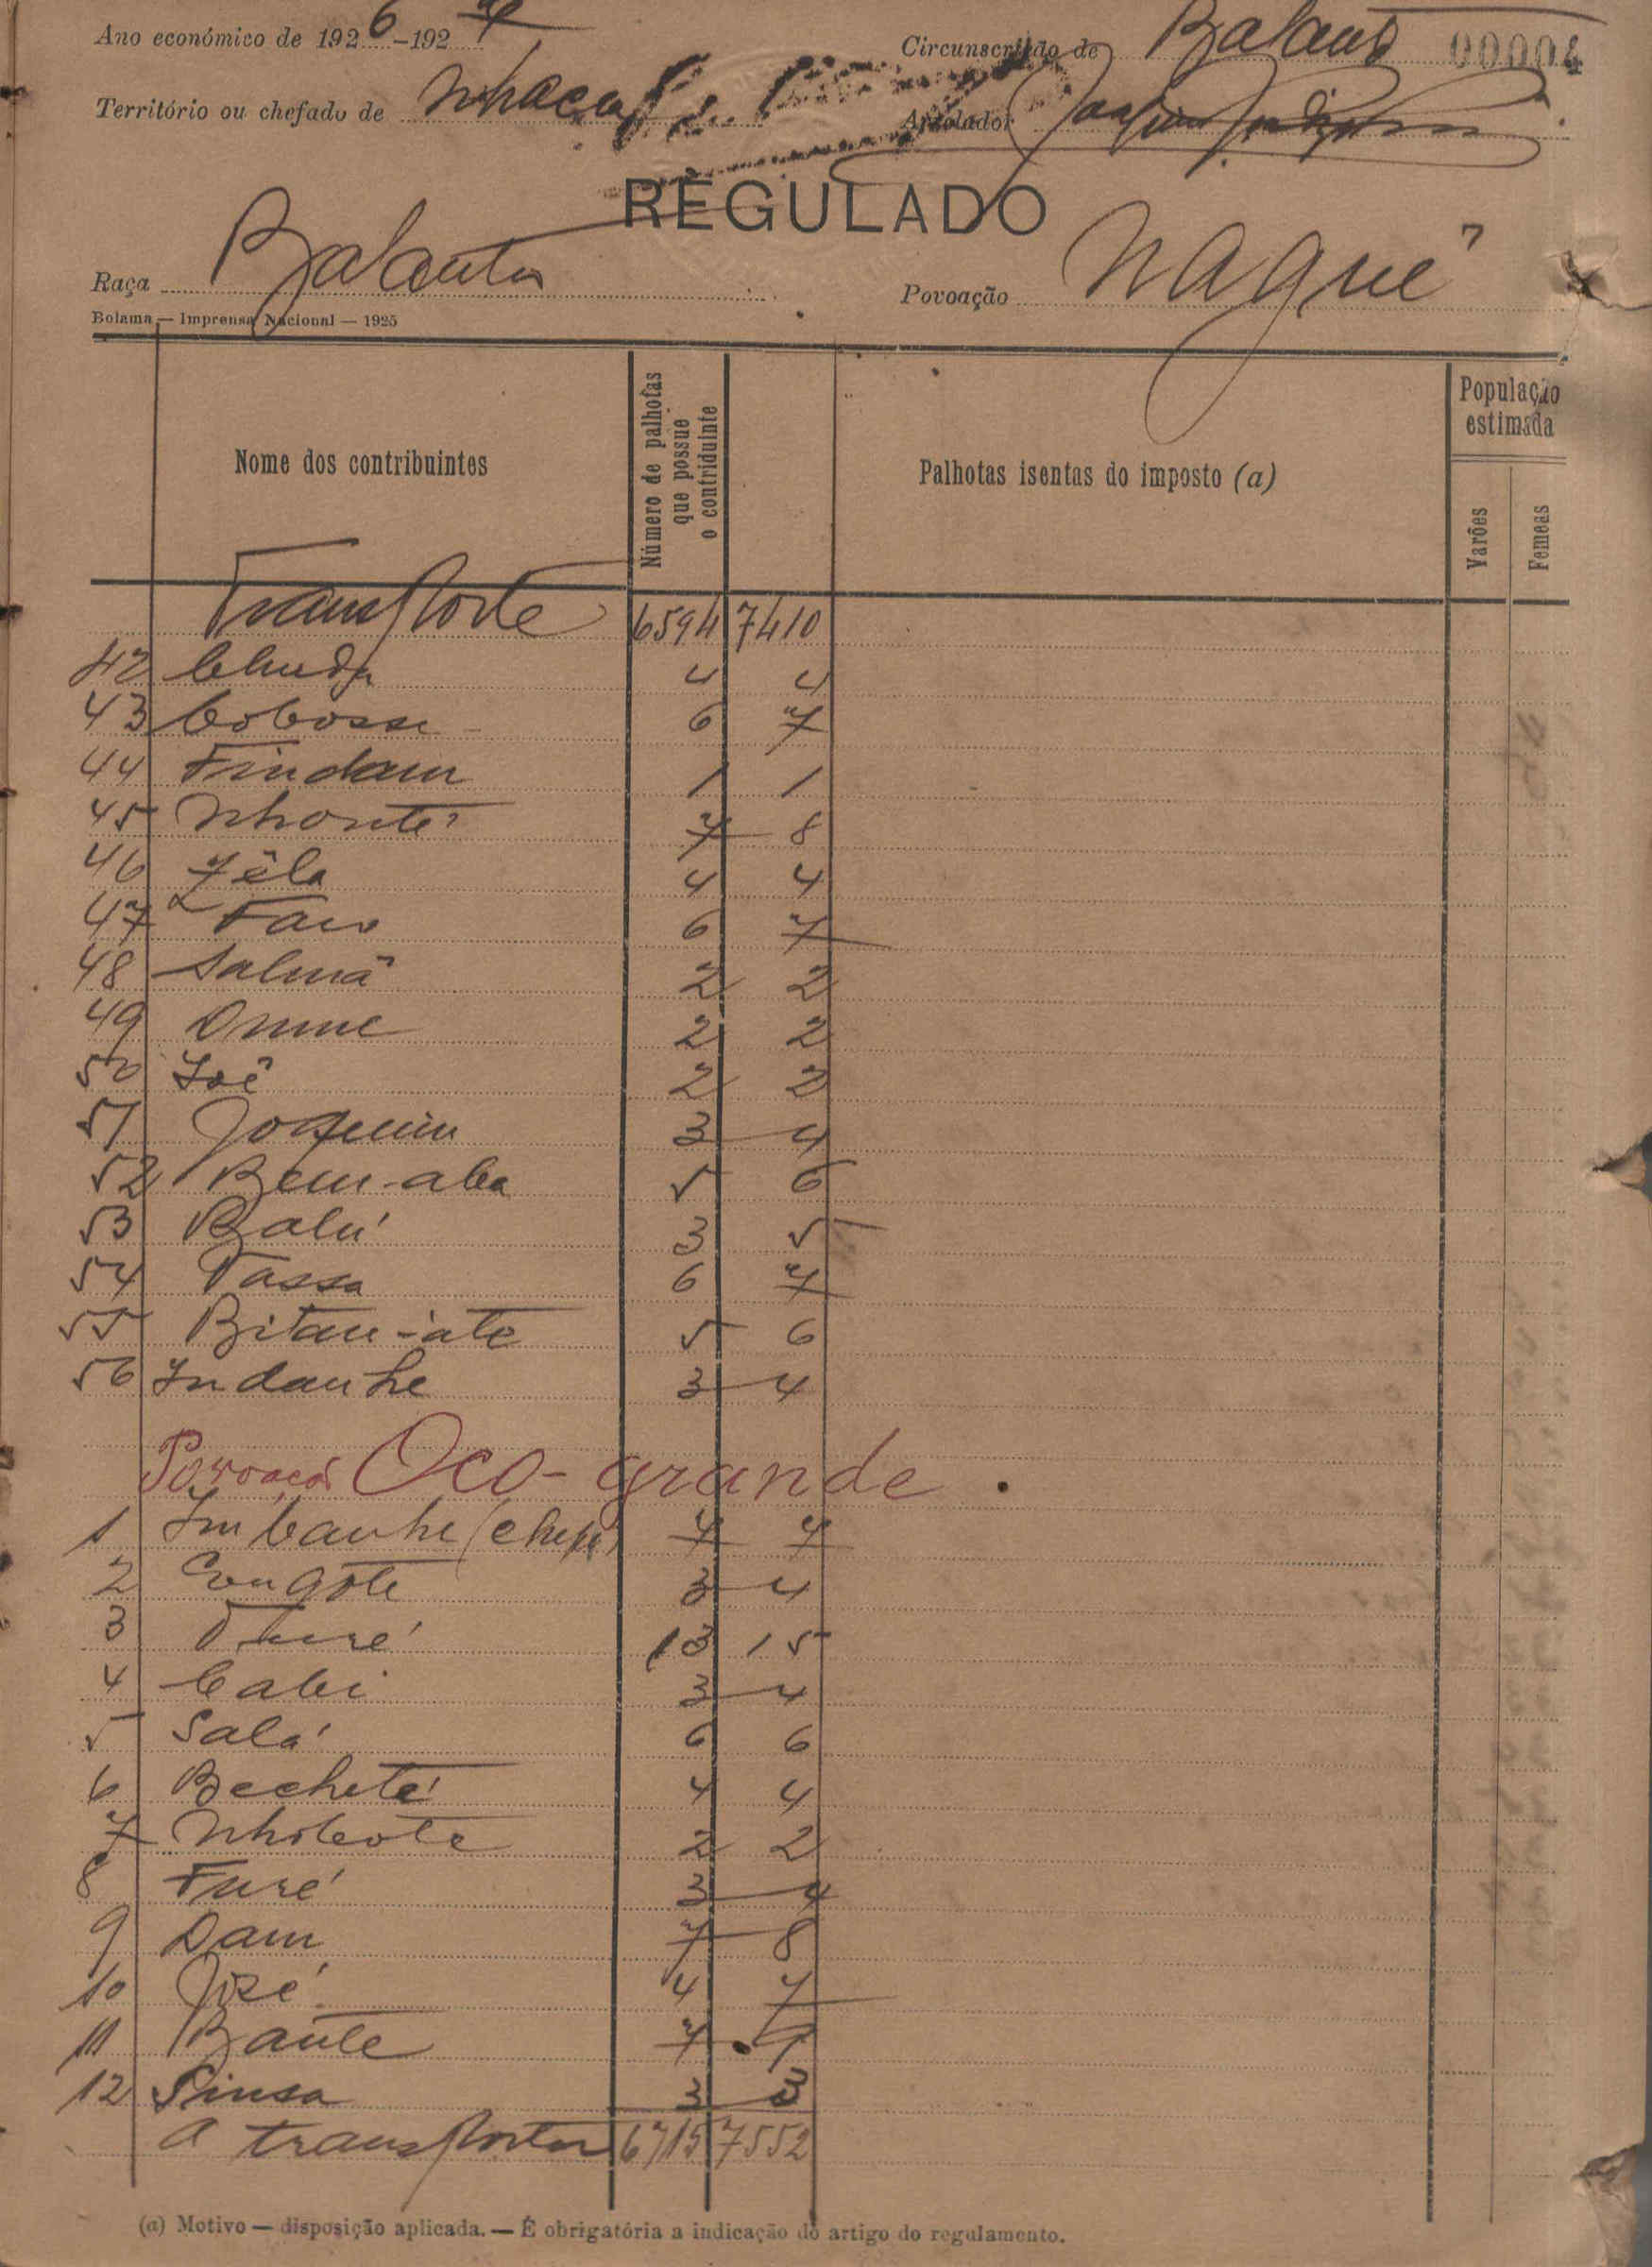 Ano económico de 1926-1927
Circunscrição de Balanta 00004
Território ou chefado de Nhacra
Arrolador
REGULADO
Raça Balanta
Povoação Nague
Bolama — Imprensa Nacional — 1925
Nome dos contribuintes
Número de palhotas que possue o contriduinte
Palhotas isentas do imposto (a)
População estimada
Varões
Femeas
Transporte 6594 7410
42 Chuda 4 4
43 Cobosse 6 7
44 Findam 1 1
45 Nhonté 7 8
46 Zéla 4 4
47 Faw 6 7
48 Salmã 2 2
49 Onine 2 2
50 Ioê 2 2
51 Joaquim 3 4
52 Bem-aba 5 6
53 Balú 3 5
54 Tassa 6 7
55 Bitan-iate 5 6
56 Indanhe 3 4
Povoação Oco-grande.
1 Imbanhe (chefe) 7 7
2 Congote 3 4
3 Turé 13 15
4 Cabi 3 4
5 Salá 6 6
6 Becheté 4 4
7 Nhibote 2 2
8 Furé 3 4
9 Dam 7 8
10 José 4 7
11 Baute 7 9
12 Sinsa 3 3
A transportar 6715 7552
(a) Motivo — disposição aplicada. — É obrigatória a indicação do artigo do regulamento.